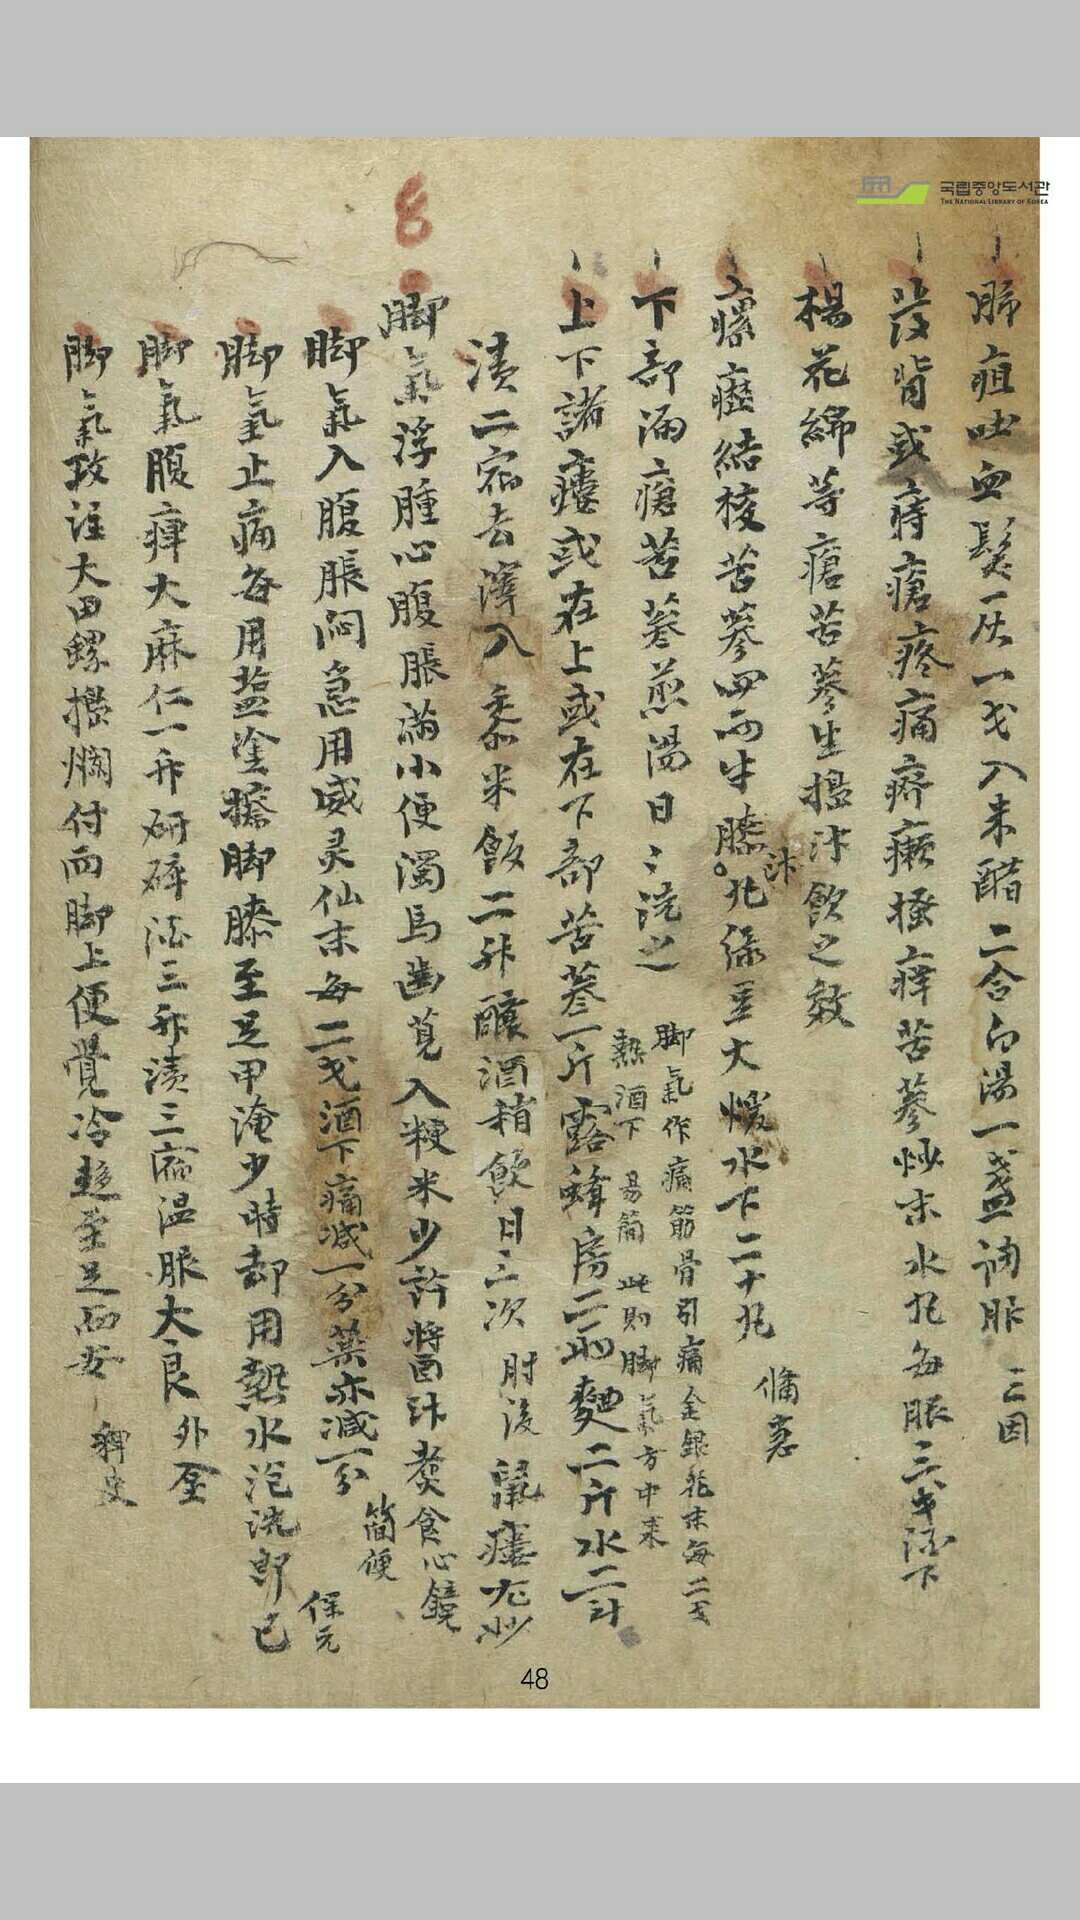 국립중앙도서관
THE NATIONAL LIBRARY OF KOREA
肺疽吐血髮灰一戈入米醋二合白湯一盞調服 三因
發背或痔瘡疼痛疥癩搔痒苦蔘炒末水丸每服三戈酒下
楊花綿等瘡苦蔘生搵汁飮之效
瘰癧結核苦蔘四兩牛膝汁丸彔豆大煖水下二十丸 備急
下部漏瘡苦蔘煎湯日〻洗之
脚氣作痛筋骨引痛金銀花末每二戈
熱酒下 易簡 此則脚氣方中来
上下諸瘻或在上或在下部苦蔘一斤露蜂房二兩麴二斤水二斗
漬二宿去滓入黍米飯二升釀酒稍飮日三次 肘後 鼠瘻尤妙
8
脚氣浮腫心腹脹滿小便濁馬齒莧入粳米少許醬汁煑食 心鏡
脚氣入腹脹悶急用威灵仙末每二戈酒下痛减一分藥亦减一分 簡便
脚氣止痛每用盐塗擦脚膝至足甲淹少時却用熱水泡洗郎已 保元
脚氣腹痺大麻仁一升硏碎酒三升漬三宿温服大良 外坮
脚氣攻注大田螺搵爛付两脚上便覺冷趍至足而安 稗史
48